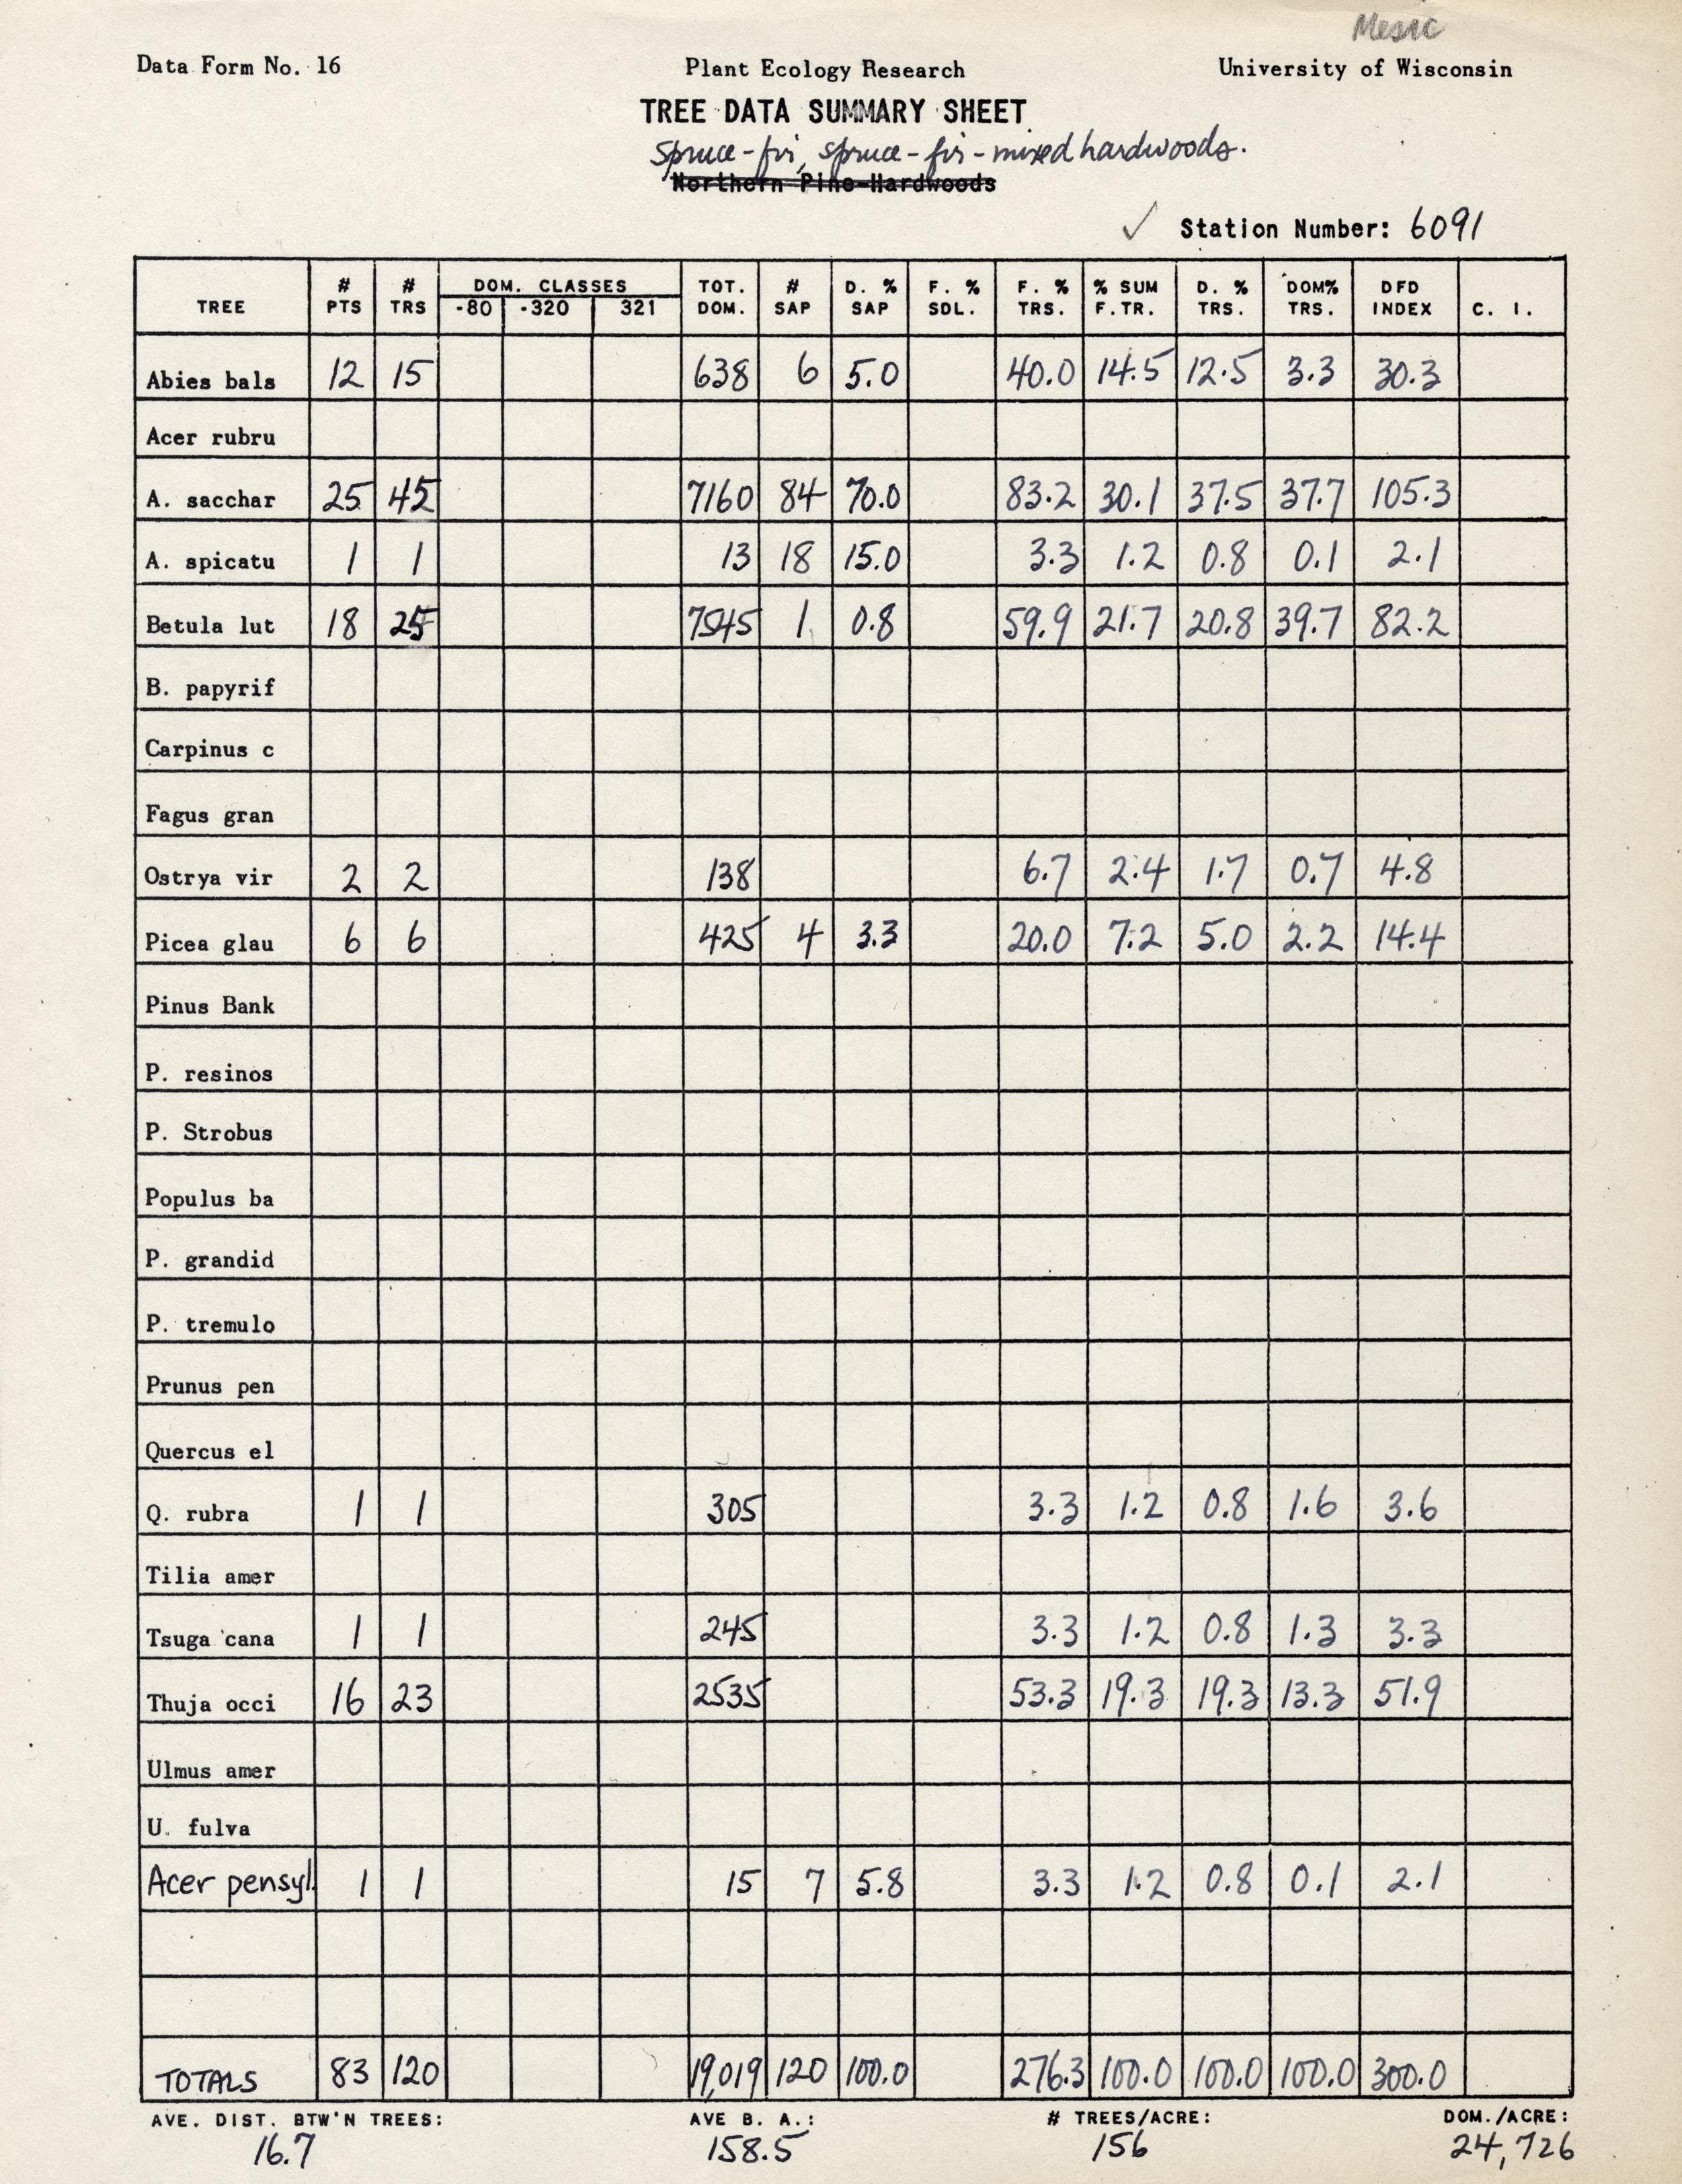 Mesic
Data Form No. 16 Plant Ecology Research University of Wisconsin
TREE DATA SUMMARY SHEET
Spruce-fir, spruce-fir-mixed hardwoods.
Northern Pine-Hardwoods
✓ Station Number: 6091
TREE # PTS # TRS DOM. CLASSES -80 -320 321 TOT. DOM. # SAP D. % SAP F. % SDL. F. % TRS. % SUM F.TR. D. % TRS. DOM% TRS. DFD INDEX C. I.
Abies bals 12 15 638 6 5.0 40.0 14.5 12.5 3.3 30.3
Acer rubru
A. sacchar 25 45 7160 84 70.0 83.2 30.1 37.5 37.7 105.3
A. spicatu 1 1 13 18 15.0 3.3 1.2 0.8 0.1 2.1
Betula lut 18 25 7545 1 0.8 59.9 21.7 20.8 39.7 82.2
B. papyrif
Carpinus c
Fagus gran
Ostrya vir 2 2 138 6.7 2.4 1.7 0.7 4.8
Picea glau 6 6 425 4 3.3 20.0 7.2 5.0 2.2 14.4
Pinus Bank
P. resinos
P. Strobus
Populus ba
P. grandid
P. tremulo
Prunus pen
Quercus el
Q. rubra 1 1 305 3.3 1.2 0.8 1.6 3.6
Tilia amer
Tsuga cana 1 1 245 3.3 1.2 0.8 1.3 3.3
Thuja occi 16 23 2535 53.3 19.3 19.3 13.3 51.9
Ulmus amer
U. fulva
Acer pensyl. 1 1 15 7 5.8 3.3 1.2 0.8 0.1 2.1
TOTALS 83 120 19,019 120 100.0 276.3 100.0 100.0 100.0 300.0
AVE. DIST. BTW'N TREES: AVE B. A.: # TREES/ACRE: DOM./ACRE:
16.7 158.5 156 24,726